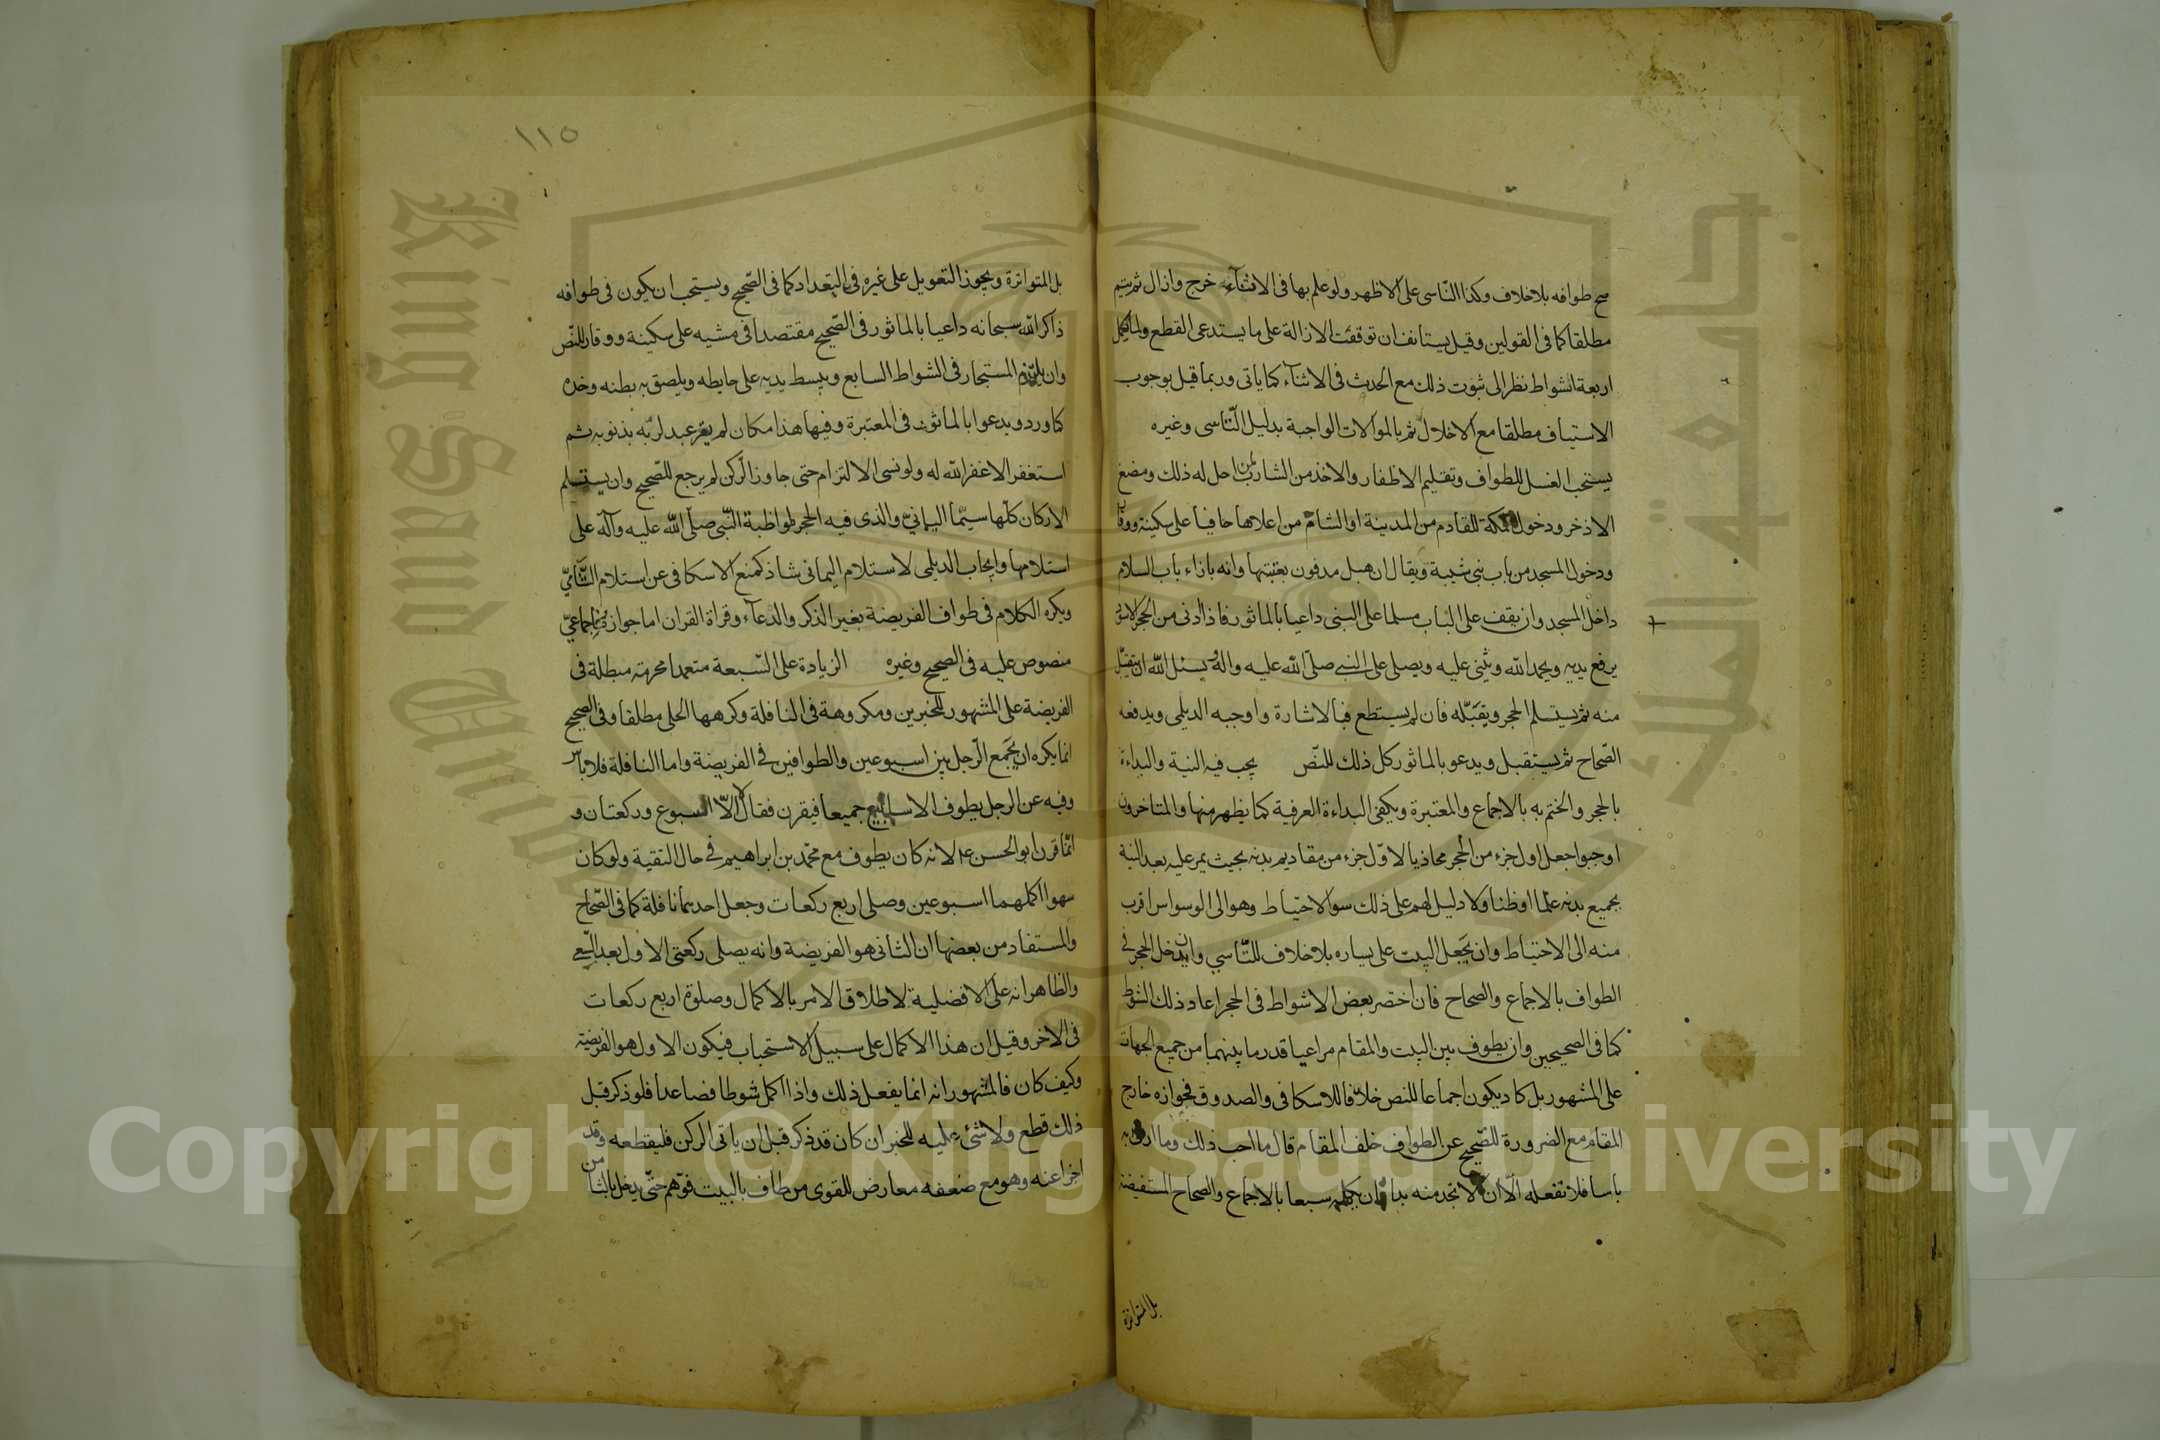 صح طوافه بلا خلاف وكذا الناسى على الاظهر ولو علم بها فى الاثنآء خرج وازال ثم يتم
مطلقا كما فى القولين وقيل يستانف ان توقفت الازالة على ما يستدعى القطع ولما يكمل
اربعة اشواط نظرا الى ثبوت ذلك مع الحدث فى الاثناء كما ياتى وربما قيل بوجوب
الاستيناف مطلقا مع الاخلال ثم بالموالات الواجبة بدليل التّاسى وغيره
يستحب الغسل للطواف وتقليم الاظفار والاخذ من الشارب احل له ذلك ومضغ
الاذخر ودخول مكة للقادم من المدينة او الشام من اعلاها حافيا على سكينة ووقار
ودخول المسجد من باب بنى شيبة ويقال ان هبل مدفون بعتبتها وانه بازاء باب السلام
داخل المسجد وان يقف على الباب مسلما على النبى داعيا بالماثور فاذا دنى من الحجر الاسود
يرفع يديه ويحمد الله ويثنى عليه ويصلى على النبى صلّى الله عليه واله ويسئل الله ان يتقبّل
منه ثم يستلم الحجر ويقبّله فان لم يستطع فبالاشارة واوجبه الديلمى ويدفعه
الصّحاح ثم يستقبل ويدعو بالماثور كل ذلك للنصّ يجب فيه النية والبداءة
بالحجر والختم به بالاجماع والمعتبرة ويكفى البداءة العرفية كما يظهر منها والمتاخرون
اوجبوا جعل اول جزء من الحجر محاذيا لاوّل جزء من مقاديم بدنه بحيث يمر عليه بعد النية
بجميع بدنه علما او ظنا ولا دليل لهم على ذلك سوى الاحتياط وهو الى الوسواس اقرب
منه الى الاحتياط وان يجعل البيت على يساره بلا خلاف للتّاسي وان يدخل الحجر فى
الطواف بالاجماع والصحاح فان اختصر بعض الاشواط فى الحجر اعاد ذلك الشوط
كما فى الصحيحين وان يطوف بين البيت والمقام مراعيا قدر ما بينهما من جميع الجهات
على المشهور بل كاد يكون اجماعا للنص خلافا للاسكافى والصدوق فجوازه خارج
المقام مع الضرورة للصّحيح عن الطواف خلف المقام قال ما احب ذلك وما ارى به
باسا فلا تفعله الّا ان لا تجد منه بدا وان يكمله سبعا بالاجماع والصحاح المستفيضة
بل المتواترة
١١٥
بل المتواترة ويجوز التعويل على غيره فى التعداد كما فى الصّحيح ويستحب ان يكون فى طوافه
ذاكر الله سبحانه داعيا بالماثور فى الصّحيح مقتصدا فى مشيه على سكينة ووقار للنصّ
وان يلتزم المستجار فى الشواط السابع ويبسط يديه على حايطه ويلصق به بطنه وخده
كما ورد ويدعو بالماثور فى المعتبرة وفيها هذا مكان لم يقر عبد لربّه بذنوبه ثم
استغفر الا غفر الله له ولو نسى الالتزام حتى جاوز الركن لم يرجع للصّحيح وان يستلم
الاركان كلّها سيّما اليمانىّ والذى فيه الحجر لمواظبة النّبى صلّى الله عليه وآله على
استلامها وايجاب الديلمى لاستلام اليمانى شاذ كمنع الاسكافى عن استلام الشّامىّ
ويكره الكلام فى طواف الفريضة بغير الذكر والدعآء وقراة القران اما جوازه فاجماعىّ
منصوص عليه فى الصحيح وغيره الزيادة على السّبعة متعمدا محرمة مبطلة فى
الفريضة على المشهور للخبرين ومكروهة فى النافلة وكرهها الحلى مطلقا وفى الصحيح
انما يكره ان يجمع الرّجل بين اسبوعين والطوافين فى الفريضة واما النافلة فلا باس
وفيه عن الرجل يطوف الاسابيع جميعا فيقرن فقال لا الّا اسبوع وركعتان و
انّما قرن ابو الحسن ع لانه كان يطوف مع محمّد بن ابراهيم فى حال التقية ولو كان
سهوا اكملهما اسبوعين وصلى اربع ركعات وجعل احدهما نافلة كما فى الصّحاح
والمستفاد من بعضها ان الثانى هو الفريضة وانه يصلى ركعتى الاول بعد السّعى
والظاهر انه على الافضلية لاطلاق الامر بالاكمال وصلوة اربع ركعات
فى الاخر وقيل ان هذا الاكمال على سبيل الاستحباب فيكون الاول هو الفريضة
وكيف كان فالمشهور انه انما يفعل ذلك واذا اكمل شوطا فصاعدا فلو ذكر قبل
ذلك قطع ولا شئ عليه للخبر ان كان قد ذكر قبل ان ياتى الركن فليقطعه وقد
اجزا عنه وهو مع ضعفه معارض للقوى من طاف بالبيت فوهم حتّى يدخل بالثامن